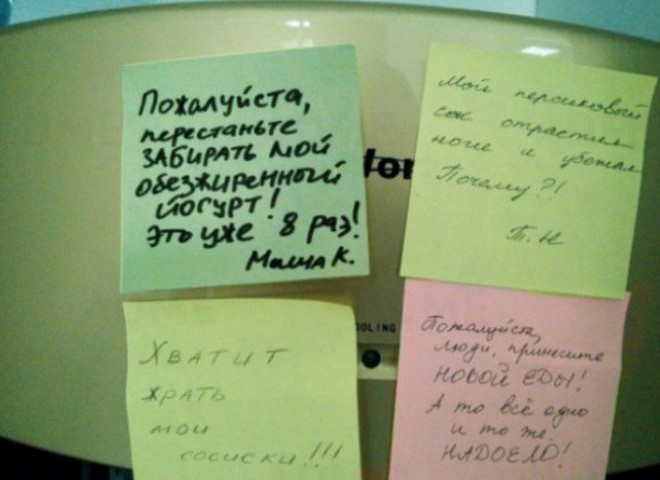 Пожалуйста,
перестаньте
ЗАБИРАТЬ МОЙ
обезжиренный
ЙОГУРТ!
Это уже 8 раз!
Маша К.
Мой персиковый
сок отрастил
ноги и убежал
Почему?!
Т.Н
ХВАТИТ
ЖРАТЬ
МОИ
СОСИСКИ!!!
Пожалуйста,
люди, принесите
НОВОЙ ЕДЫ!
А то всё одно
и то же.
НАДОЕЛО!
OOLING